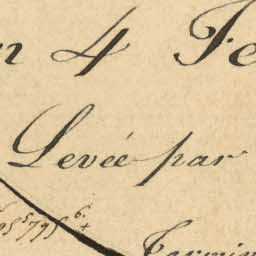 n 4 Fe
Levée par
Termin